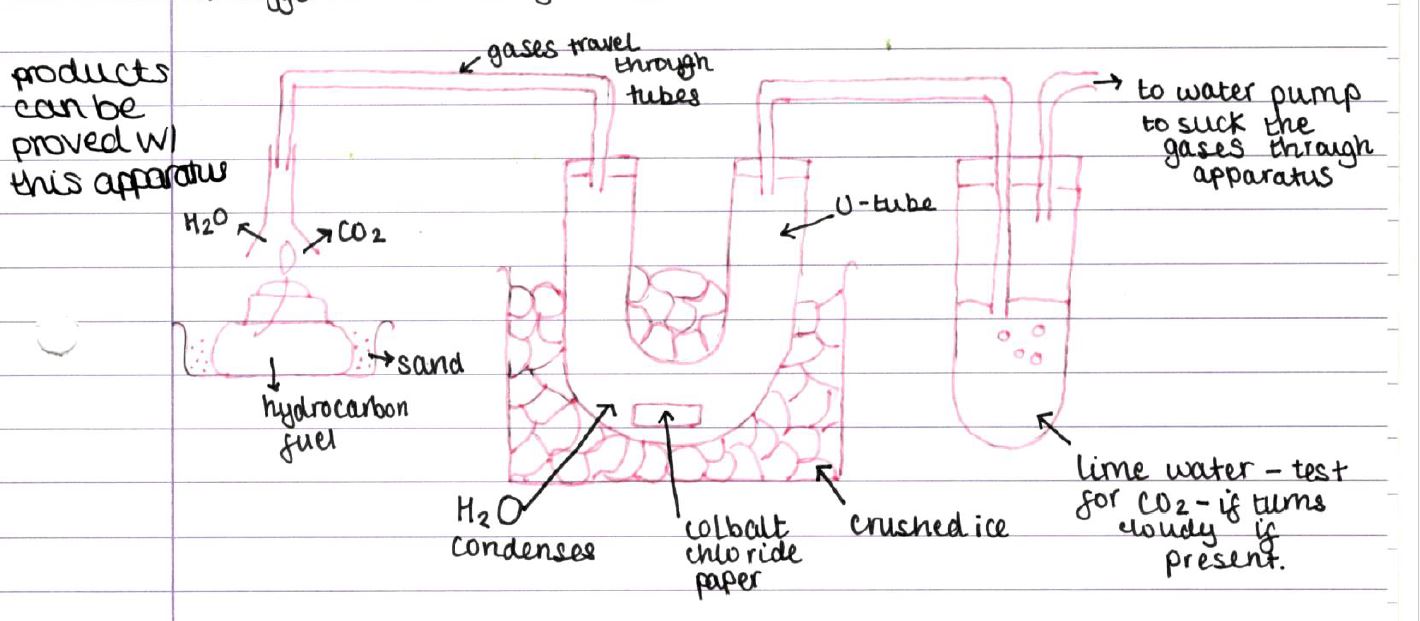 gases travel
through
tubes
products
can be
proved w/
this apparatus
to water pump
to suck the
gases through
apparatus
U-tube
H2O
CO2
sand
hydrocarbon
fuel
H2O
condenses
colbalt
chloride
paper
crushed ice
lime water - test
for CO2 - if turns
cloudy if
present.